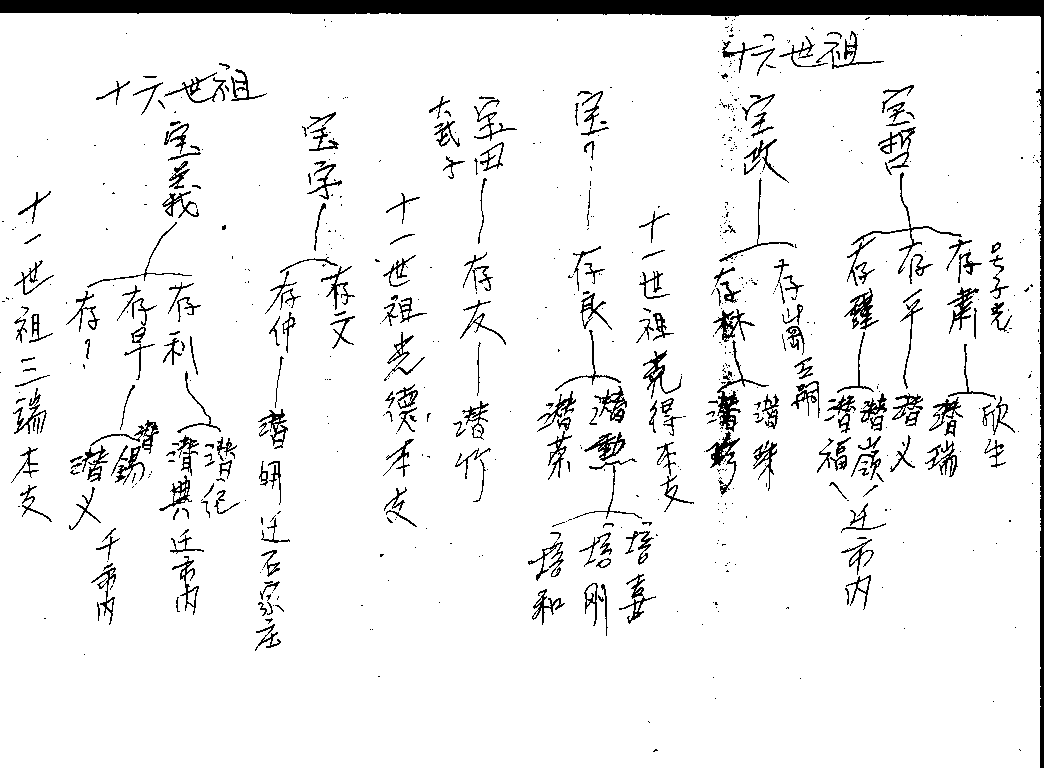 十六世祖
宝哲
号子光
存肃
存平
存瑾
欣生
潜瑞
潜义
潜嶺
潜福
迁市内
宝政
存嵩
存樹
潜珠
潜珍
十一世祖克得本支
宝?
存良
潜勲
潜荣
培喜
培刚
培和
宝田
大武子
存友
潜竹
十一世祖光德本支
十六世祖
宝字
存文
存仲
潜妍
迁石家庄
宝義
存利
存阜
存?
潜纪
潜典
迁市内
潜錫
潜义
十一世祖三端本支